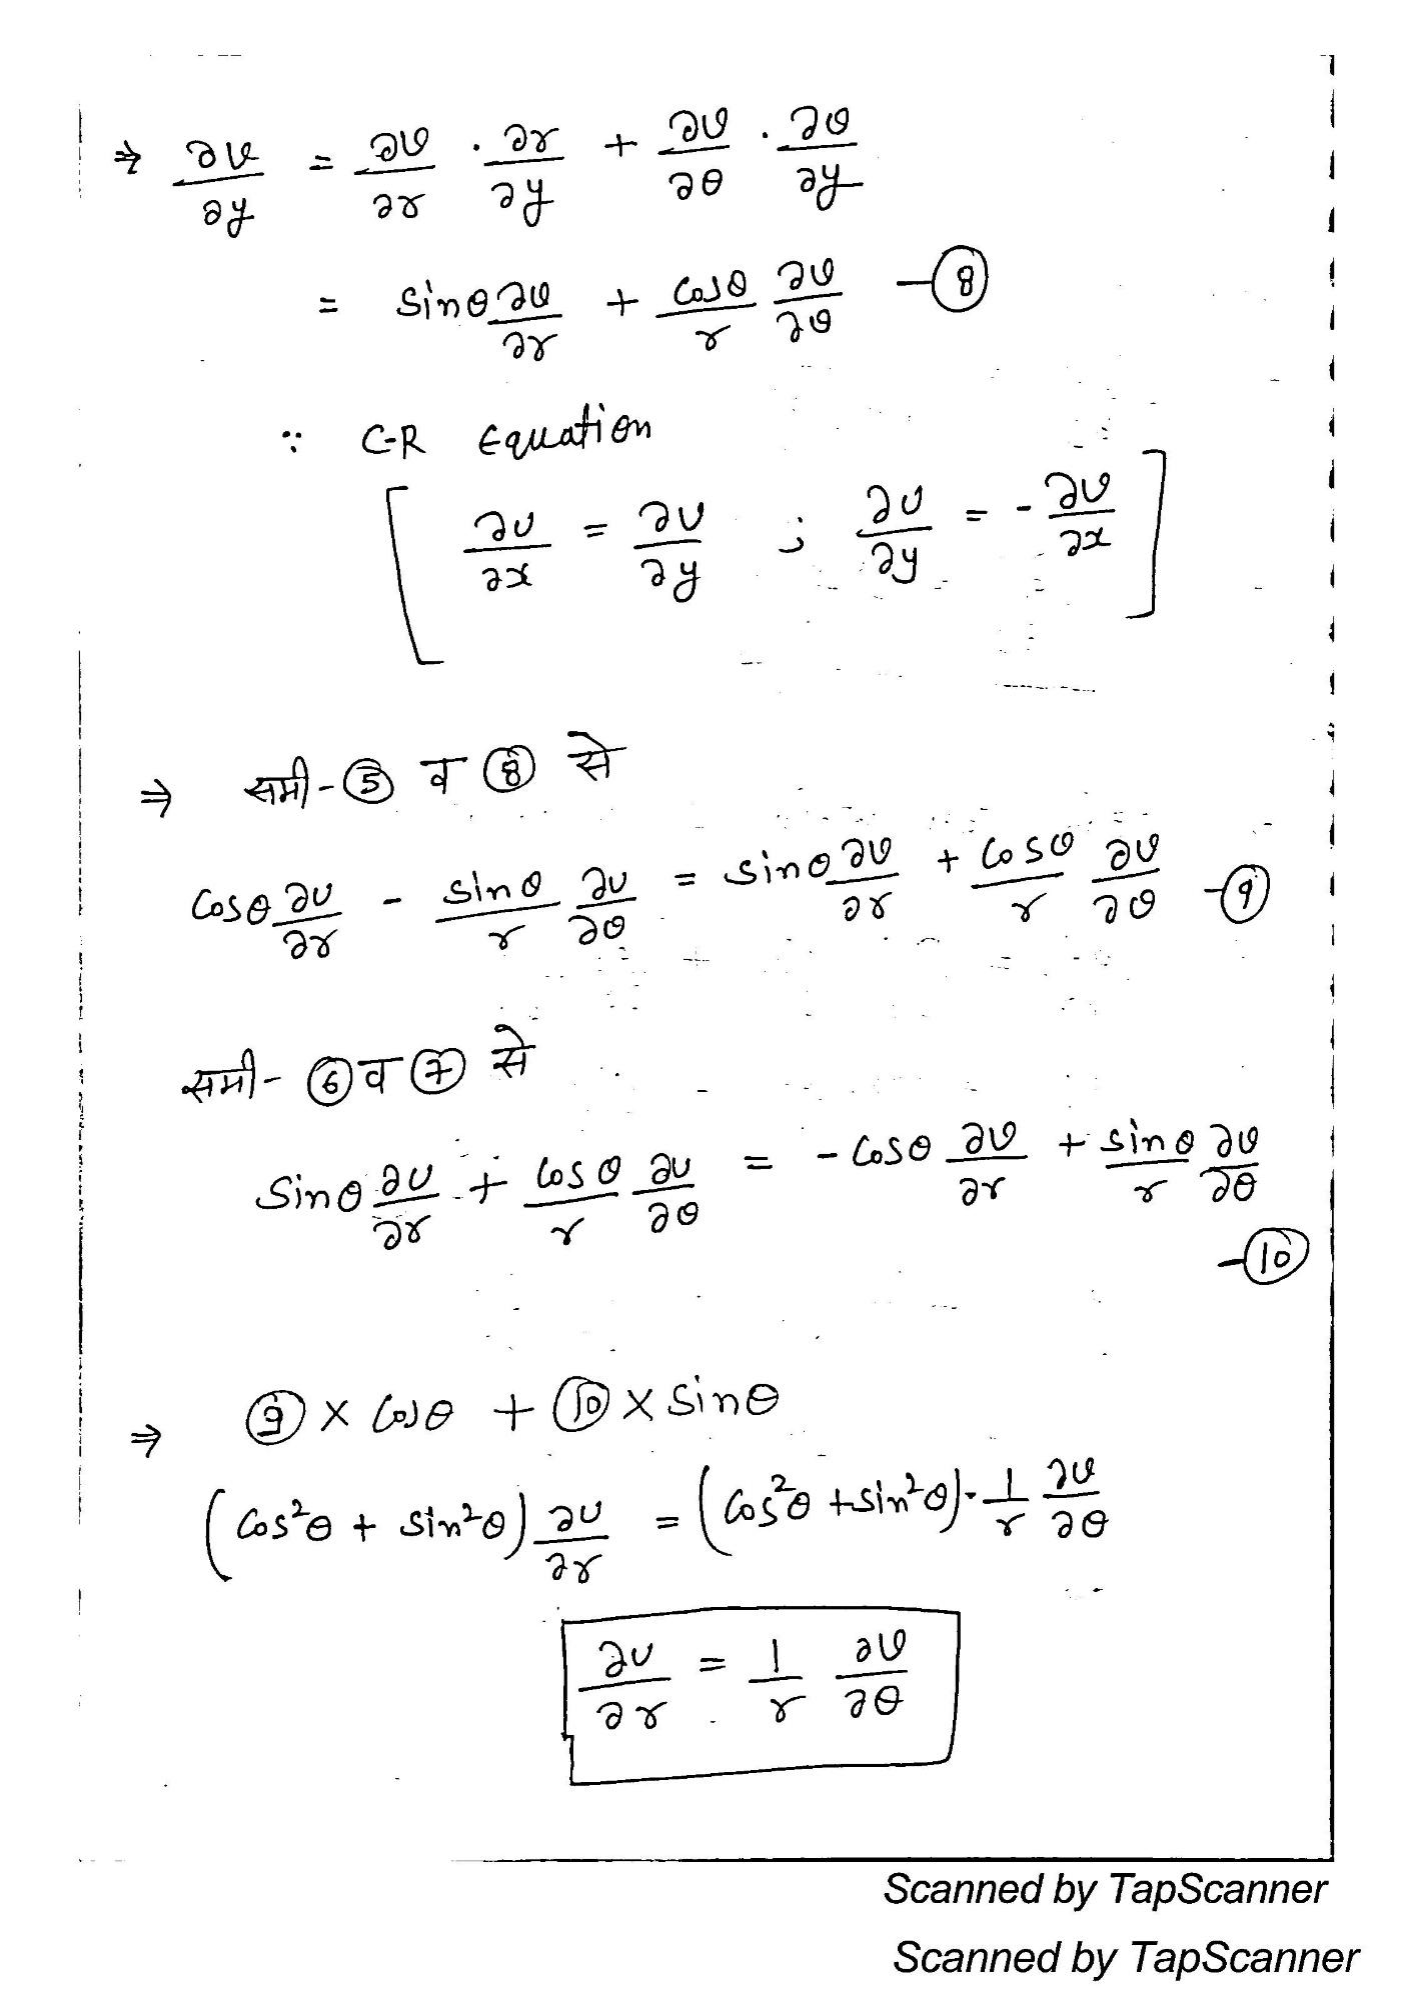 ⇒ ∂v/∂y = ∂v/∂r · ∂r/∂y + ∂v/∂θ · ∂θ/∂y
= sinθ ∂v/∂r + cosθ/r ∂v/∂θ —⑧
∵ C-R Equation
[ ∂u/∂x = ∂v/∂y ; ∂u/∂y = - ∂v/∂x ]
⇒ समी-⑤ व ⑧ से
cosθ ∂u/∂r - sinθ/r ∂u/∂θ = sinθ ∂v/∂r + cosθ/r ∂v/∂θ -⑨
समी- ⑥ व ⑦ से
sinθ ∂u/∂r + cosθ/r ∂u/∂θ = - cosθ ∂v/∂r + sinθ/r ∂v/∂θ
-⑩
⇒ ⑨ × cosθ + ⑩ × sinθ
(cos²θ + sin²θ) ∂u/∂r = (cos²θ + sin²θ) · 1/r ∂v/∂θ
∂u/∂r = 1/r ∂v/∂θ
Scanned by TapScanner
Scanned by TapScanner